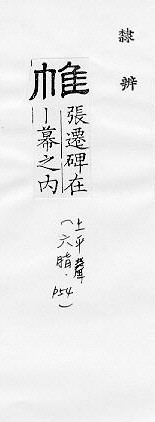 隸辨
帷
張遷碑在
丨幕之内
(上平聲
六脂.
P54)